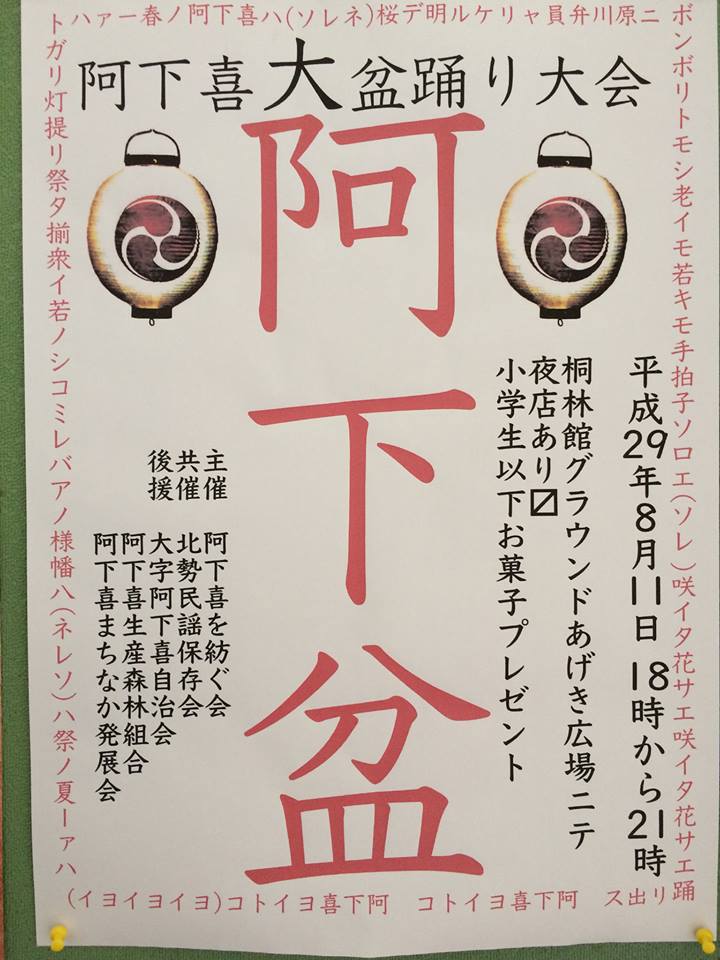 ハァー春ノ阿下喜ハ(ソレネ)桜デ明ルケリャ員弁川原ニ
ボンボリトモシ老イモ若キモ手拍子ソロエ(ソレ)咲イタ花サエ咲イタ花サエ踊
リ出ス 阿下喜ヨイトコ 阿下喜ヨイトコ(ヨイヨイヨイ)
ハァー夏ノ祭ハ(ソレネ)八幡様ノアバレミコシノ若イ衆揃タ祭リ提灯リガト
阿下喜大盆踊り大会
阿下盆
平成29年8月11日 18時から21時
桐林館グラウンドあげき広場ニテ
夜店あり〼
小学生以下お菓子プレゼント
主催 阿下喜を紡ぐ会
共催 北勢民謡保存会
後援 大字阿下喜自治会
阿下喜生産森林組合
阿下喜まちなか発展会